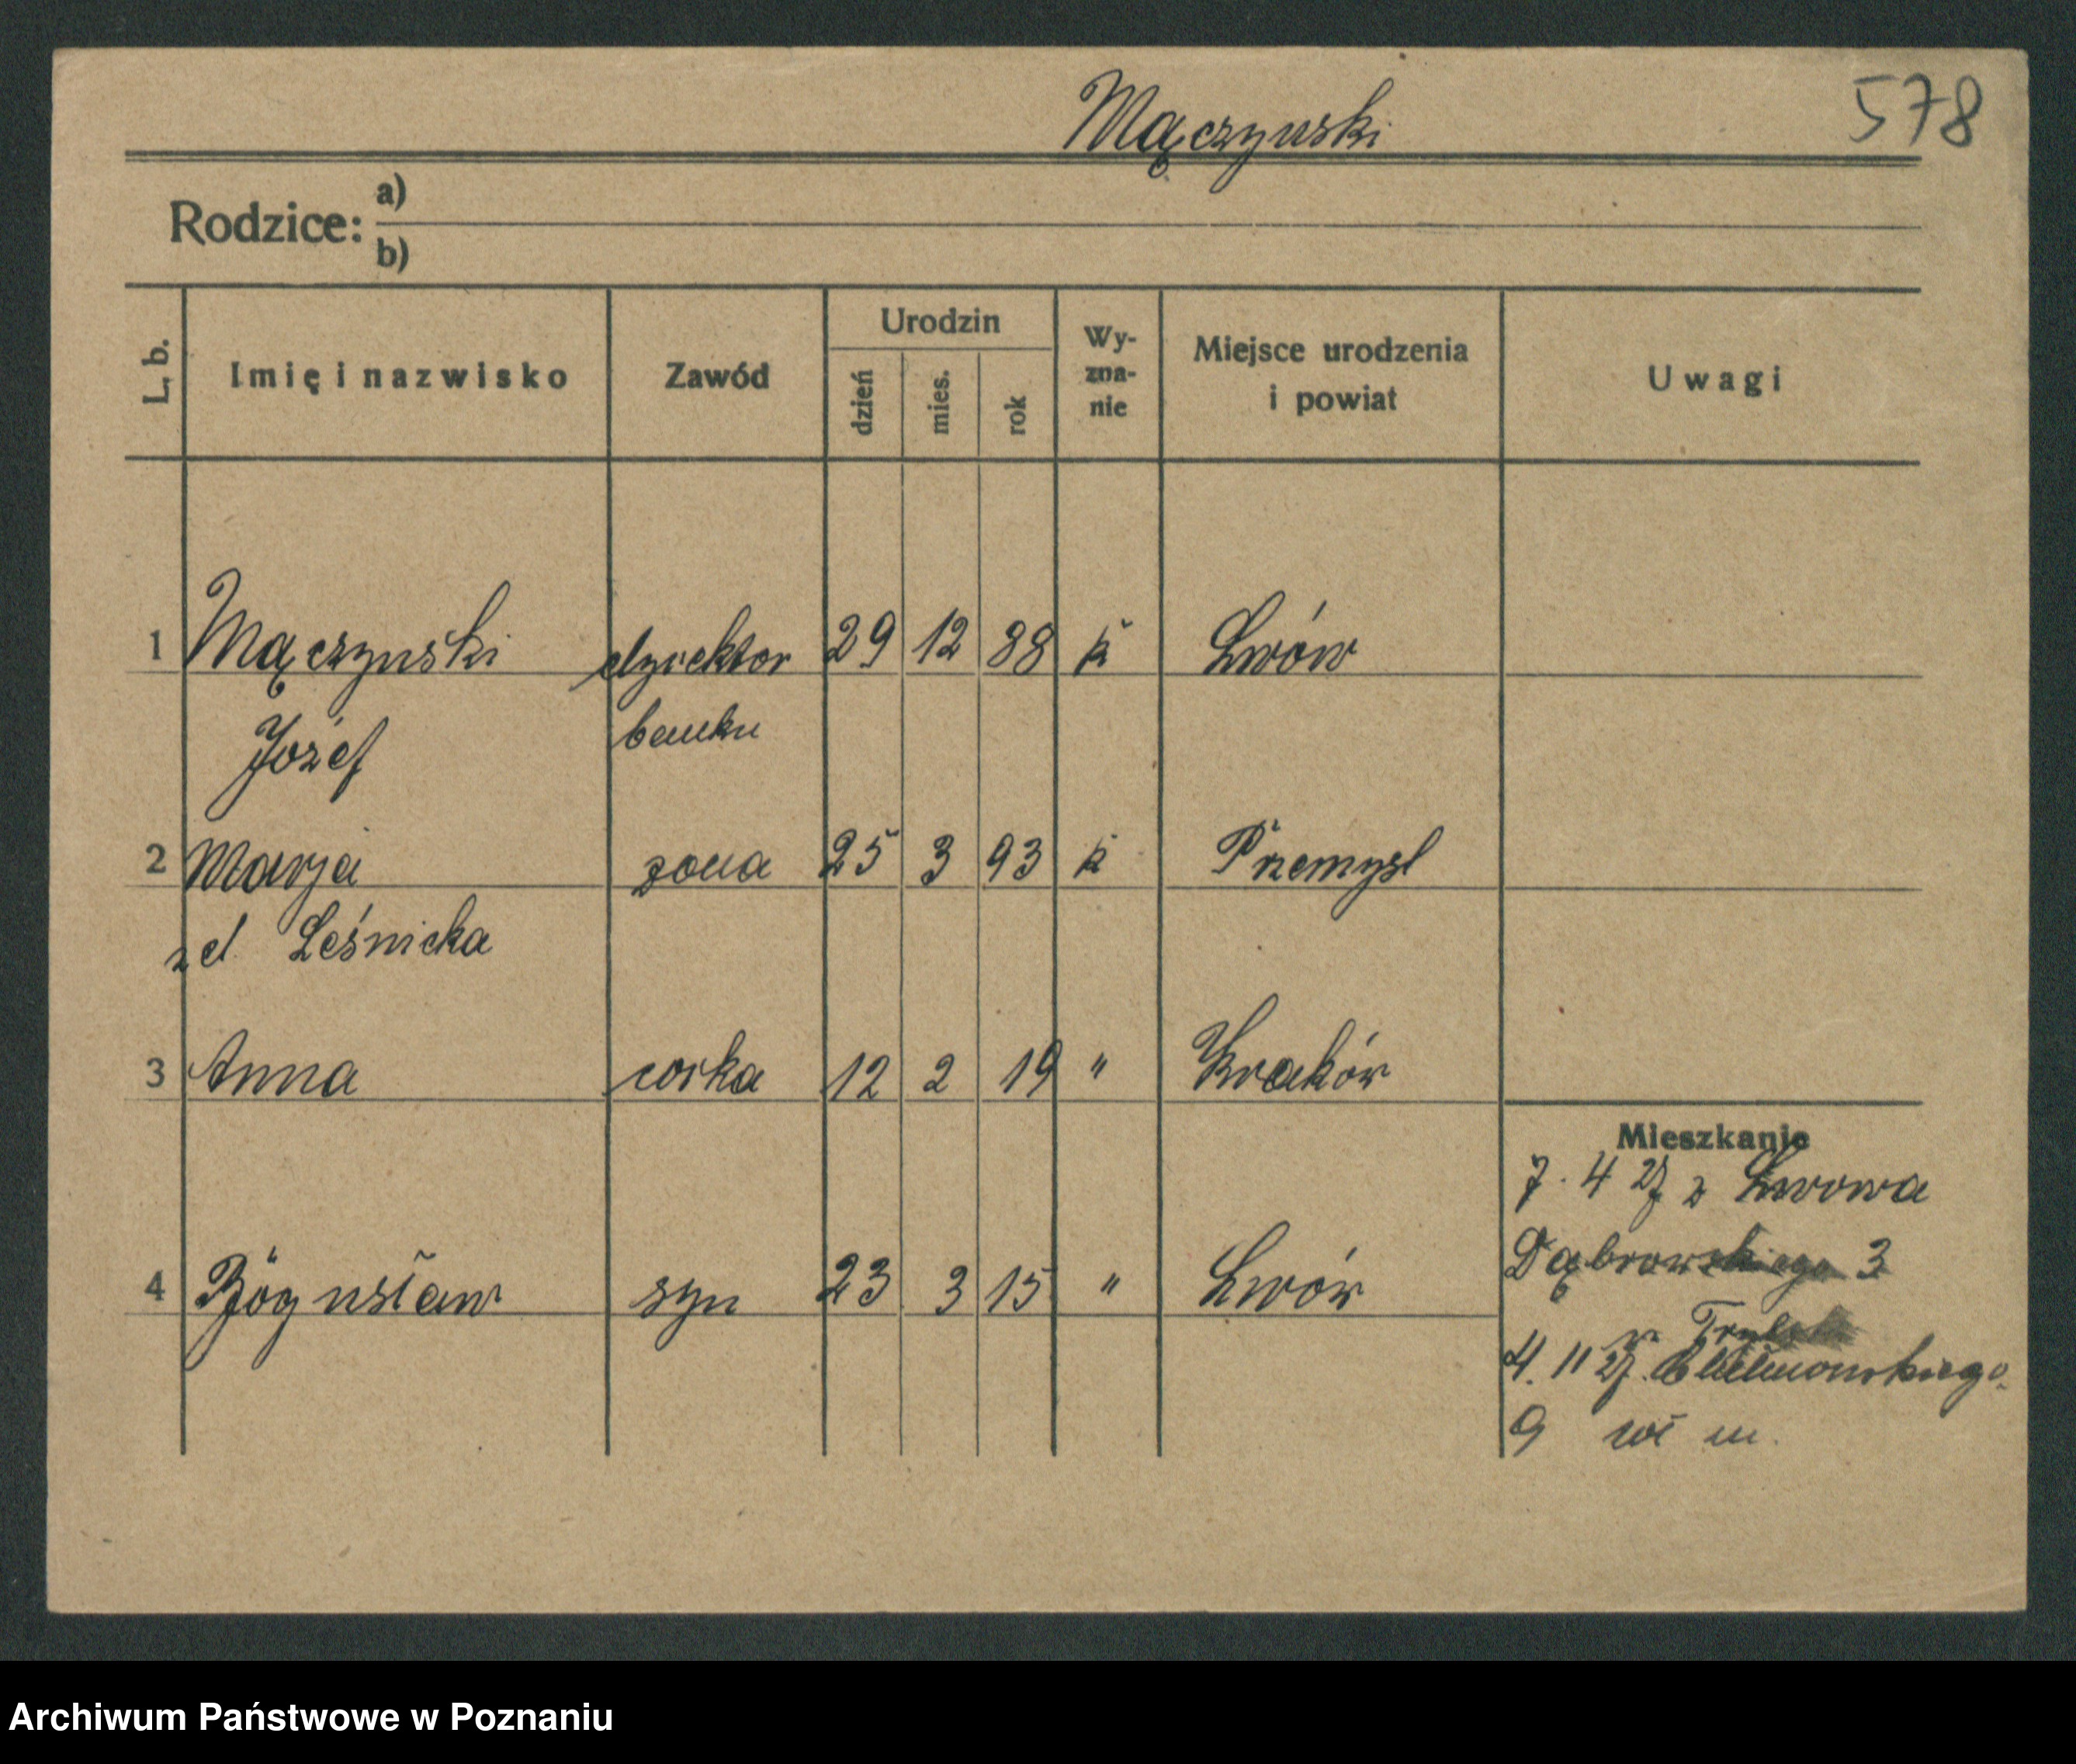 Mączynski 578
Rodzice: a)
b)
L. b. Imię i nazwisko Zawód Urodzin dzień mies. rok Wy-zna-nie Miejsce urodzenia i powiat Uwagi
1 Mączynski dyrektor 29 12 88 k Lwów
Józef banku
2 Marja zona 25 3 93 k Przemysl
z d. Leśnicka
3 Anna corka 12 2 19 " Kraków
Mieszkanie
7. 4 27 z Lwowa
Dąbrowskiego 3
4 Bogusław syn 23 3 15 " Lwów
4. 11 27.
9 wł m.
Archiwum Państwowe w Poznaniu